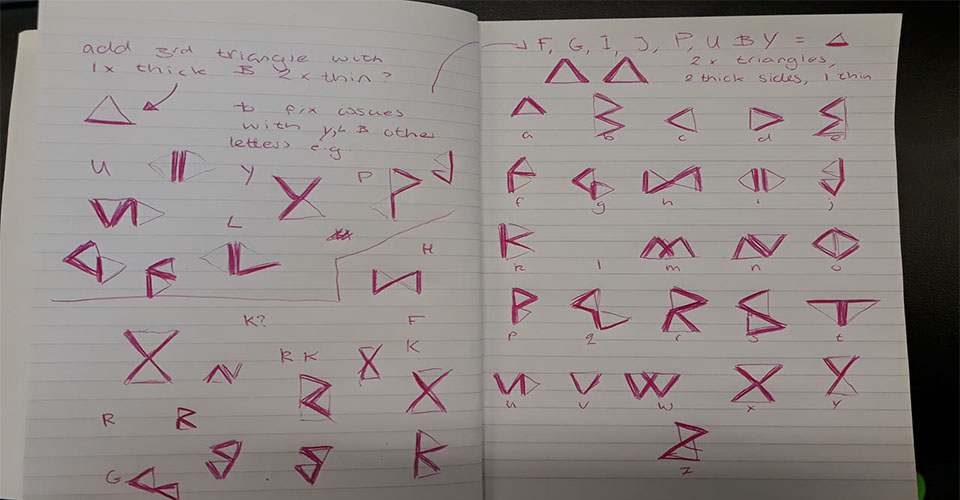 add 3rd triangle with
1x thick B 2x thin?
to fix issues
with y, L B other
letters e.g.
U
Y
P
L
H
K?
F
R K
K
R
G
→ F, G, I, J, P, U B Y = △
2 x triangles,
2 thick sides, 1 thin
a b c d e
f g h i j
k l m n o
p q r s t
u v w x y
z